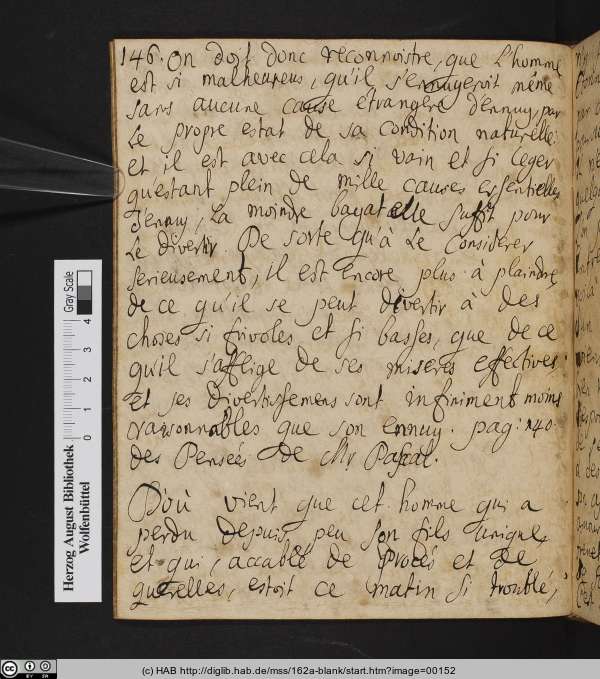 146. On doit donc reconnoistre, que L'homme
est si malheureus, qu'il s'ennuyeroit même
sans aucune cause étrangere d'ennuy, par
Le propre estat de sa condition naturelle:
et il est avec cela si vain et si leger
qu'estant plein de mille causes essentielles
d'ennuy, La moindre bagatelle suffit pour
Le divertir. De sorte qu'à Le considerer
serieusement, il est encore plus à plaindre
de ce qu'il se peut divertir à des
choses si frivoles et si basses, que de ce
qu'il s'afflige de ses miseres effectives.
et ses divertissemens sont infiniment moins
raisonnables que son ennuy. pag: 140.
des Pensées de Mr Pascal.
D'où vient que cet homme qui a
perdu depuis peu son fils unique,
et qui, accablé de procés et de
querelles, estoit ce matin si troublé,
Herzog August Bibliothek
Wolfenbüttel
Gray Scale
0 1 2 3 4
cc BY SA
(c) HAB http://diglib.hab.de/mss/162a-blank/start.htm?image=00152